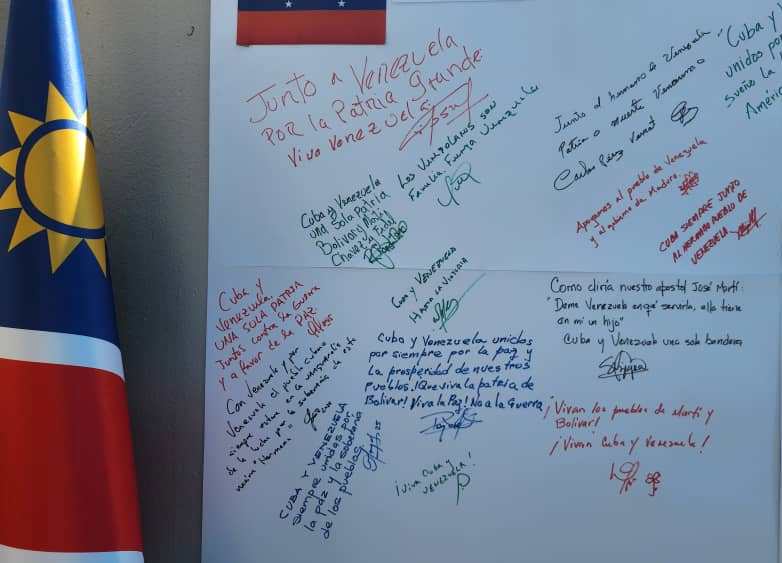 Junto a Venezuela
POR la Patria Grande
Viva Venezuela
Los Venezolanos son
Familia. Fuerza Venezuela
Cuba y Venezuela
una Sola Patria
Bolivar y Martí
Chavez y Fidel
Junto al hermano de Venezuela
Patria o muerte Venceremos
Carlos Pérez
Cuba y
unidos por
sueño la
América
Apoyamos al pueblo de Venezuela
y al gobierno de Maduro.
CUBA SIEMPRE JUNTO
AL HERMANO PUEBLO DE
VENEZUELA
Cuba y
Venezuela
UNA SOLA PATRIA
Juntos contra la Guerra
y a favor de la Paz
CUBA Y VENEZUELA
HASTA LA VICTORIA
Como diría nuestro apostol José Martí:
"Deme Venezuela en qué servirla, ella tiene
en mi un hijo"
Cuba y Venezuela una sola bandera
Con Venezuela y por
Venezuela el pueblo cubano
siempre estara en la vanguardia
de la lucha por la soberania de esta
nuestra "Hermana"
Cuba y Venezuela unidas
por siempre por la paz y
la prosperidad de nuestros
Pueblos. ¡Que viva la patria de
Bolivar! Viva la Paz! No a la Guerra
CUBA Y VENEZUELA
siempre unidos por
la paz y la soberania
de los pueblos
¡Viva Cuba y
VENEZUELA!
¡Vivan los pueblos de Martí y
Bolívar!
¡Vivan Cuba y Venezuela!